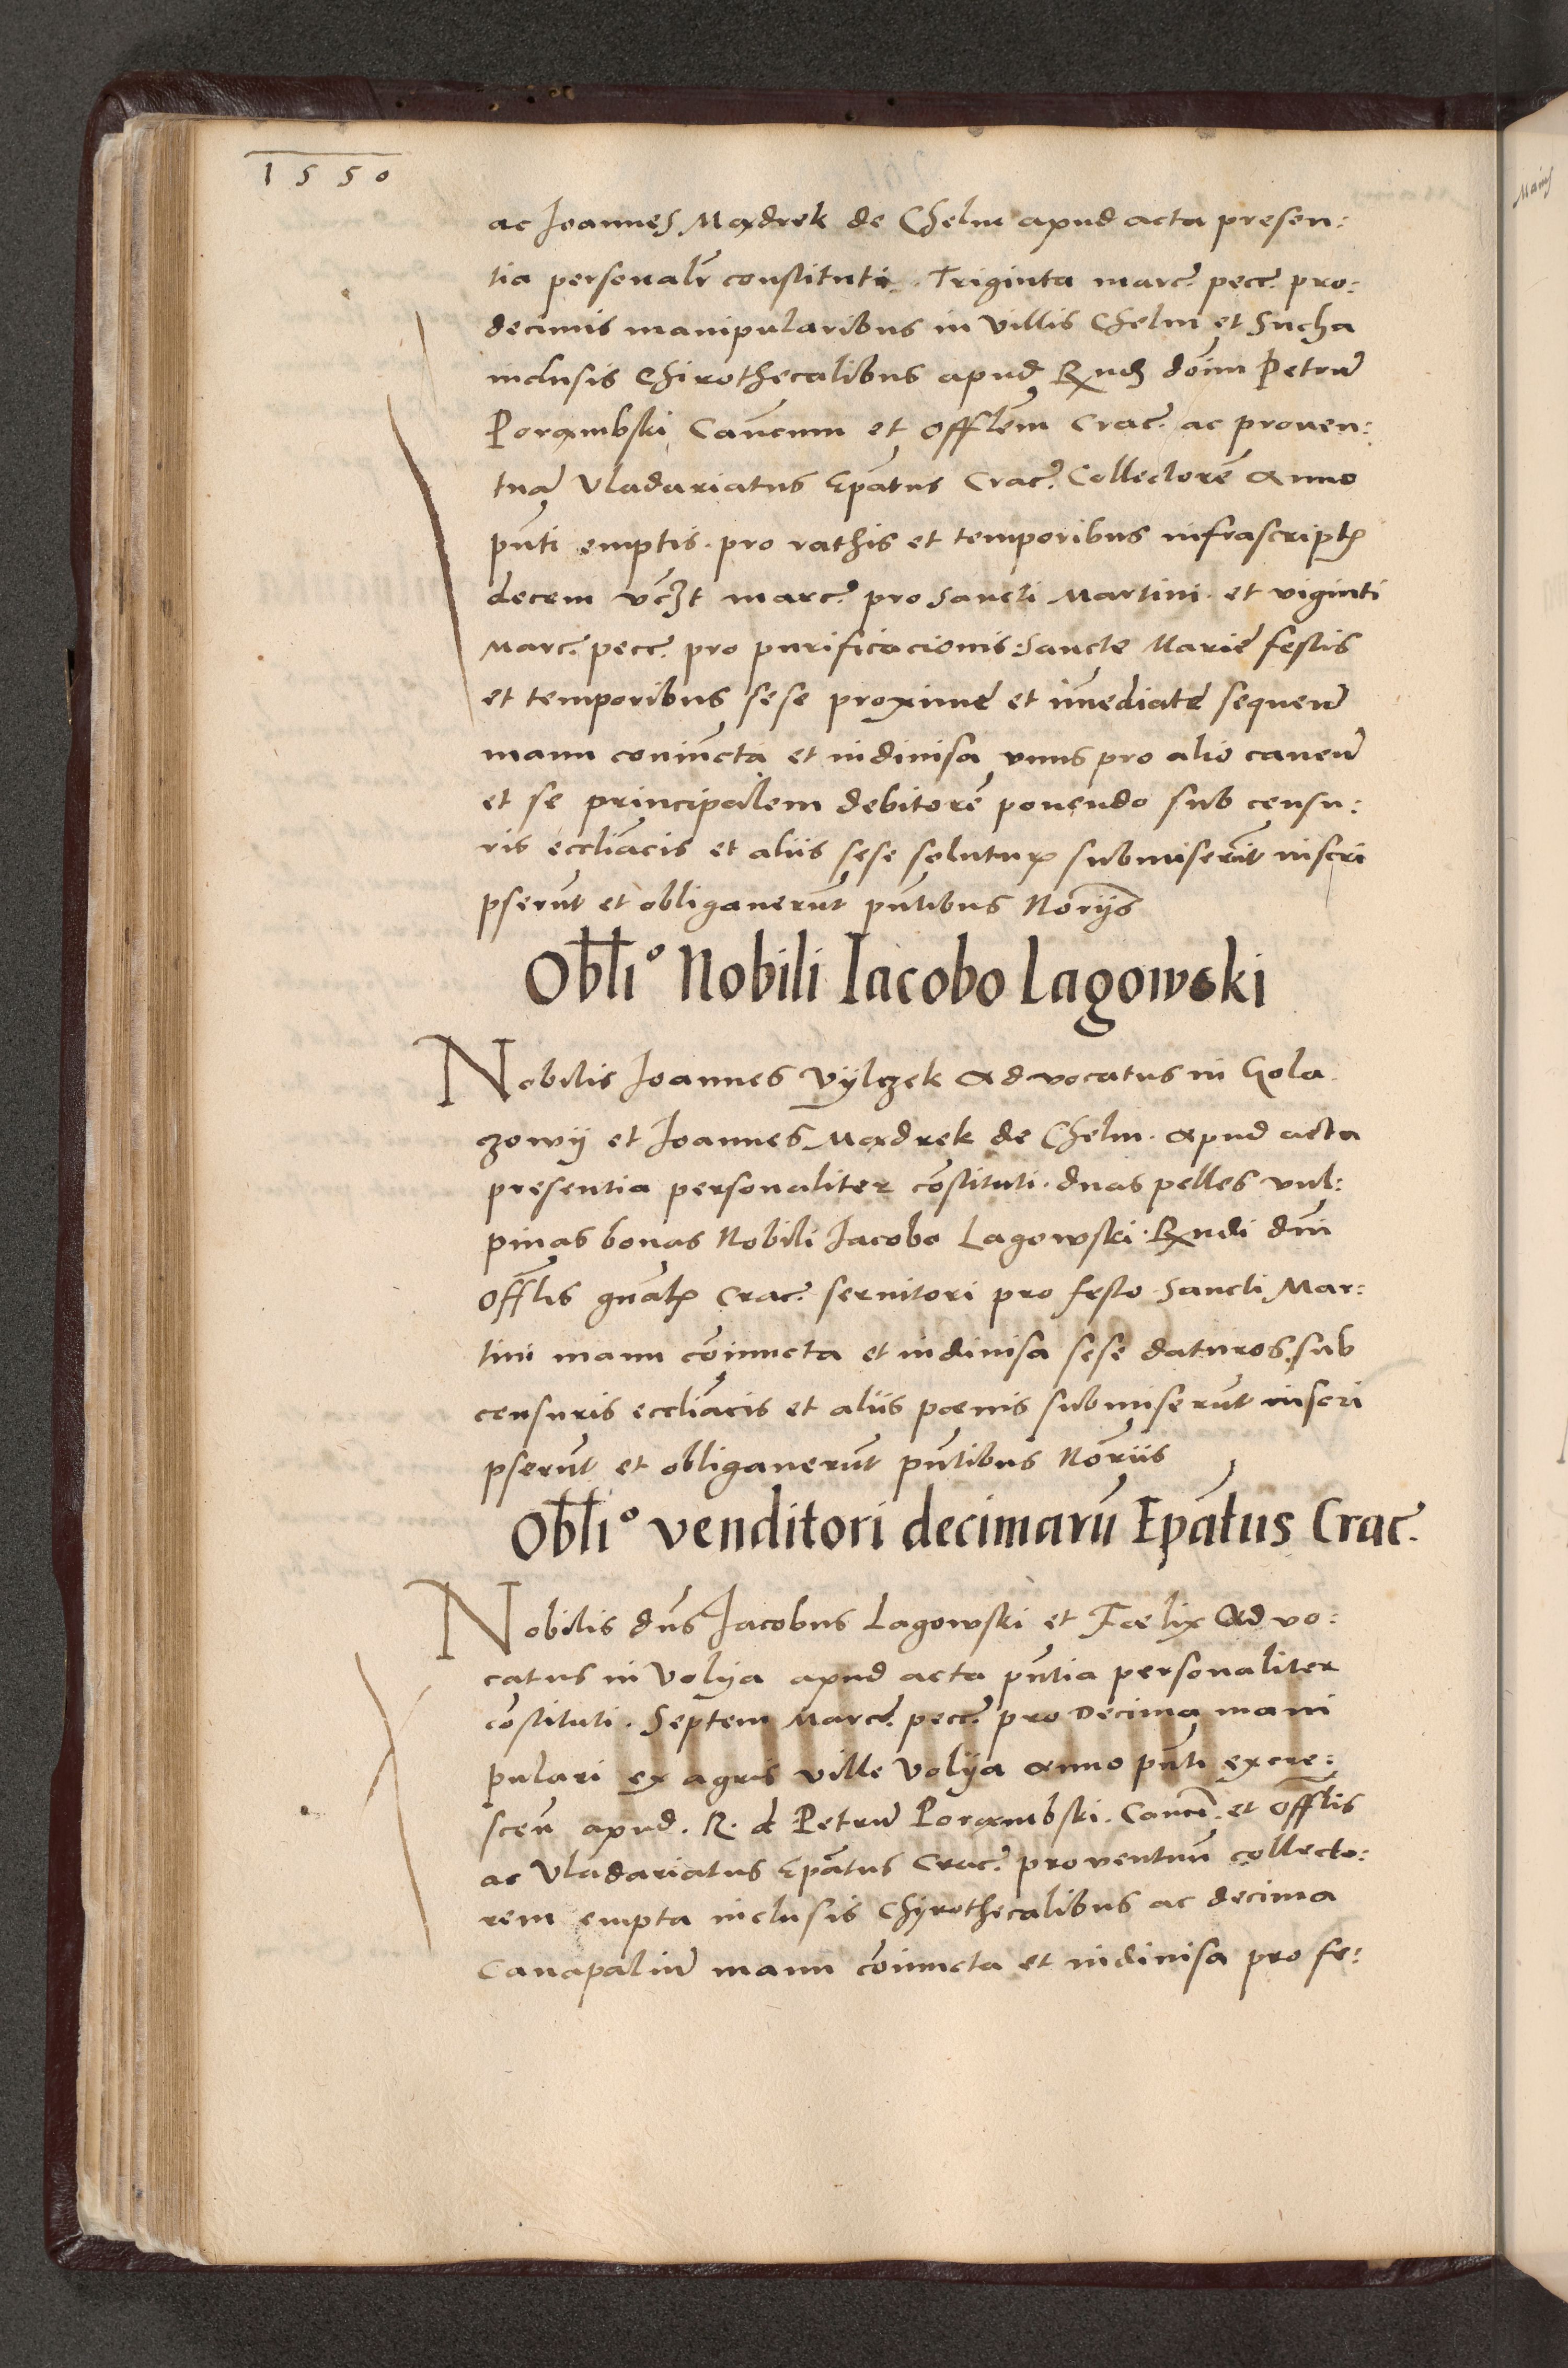 1550
ac Joannes Mądrek de Chelm apud acta presen:
tia personalr̃ constituti. Triginta marc̃. pecc̃. pro:
decimis manipularibus in villis Chelm et Sucha
inclusis Chirothecalibus apud Rndꝫ dom̃ Petrũ
Porąmbski Canc̃cum et Offłem Crac̃. ac prouen:
tuũ Vladariatus Ep̃atus Crac̃. Collectorẽ Anno
pñti emptis. pro rathis et temporibus infrascriptꝭ
decem vcꝫt marc̃. pro Sancti Martini. et viginti
Marc̃. pecc̃. pro purificacionis Sancte Marie festis
et temporibus sese proxime et im̃ediate sequeñ
manu coniũcta et indiuisa vnus pro alio caueñ
et se principalem debitorẽ ponendo sub censu:
ris eccliãcis et aliis sese soluturꝭ submiserũt inscri
pserũt et obligauerũt pñtibus Norijs
Obłi° Nobili Iacobo Lagowski
Nobilis Joannes Vÿlczek Aduocatus in Gola
zowÿ et Joannes Mądrek de Chelm. apud acta
presentia personaliter cõstituti. duas pelles vul:
pinas bonas Nobili Jacobo Lagowski. Rndi dñi
Offłis gñalꝭ Crac̃. seruitori pro festo Sancti Mar:
tini manu cõiuncta et indiuisa sese daturos. sub
censuris eccliãcis et aliis poenis submiserũt inscri
pserũt et obligauerũt pñtibus Noriis
Obłi° venditori decimarũ Ep̃atus Crac̃.
Nobilis dñs Jacobus Lagowski et Foelix Aduo:
catus in Volÿa apud acta pñtia personaliter
cõstituti. Septem Marc̃. pecc̃. pro Decima mani
pulari ex agris ville Volÿa anno pñti excre:
sceñ apud. R. d Petrũ Porąmbski. Canc̃. et Offłis
ac Vladariatus Ep̃atus Crac̃. prouentuũ collecto:
rem empta inclusis Chÿrothecalibus ac decima
Canapaliũ manu cõiuncta et indiuisa pro fe: